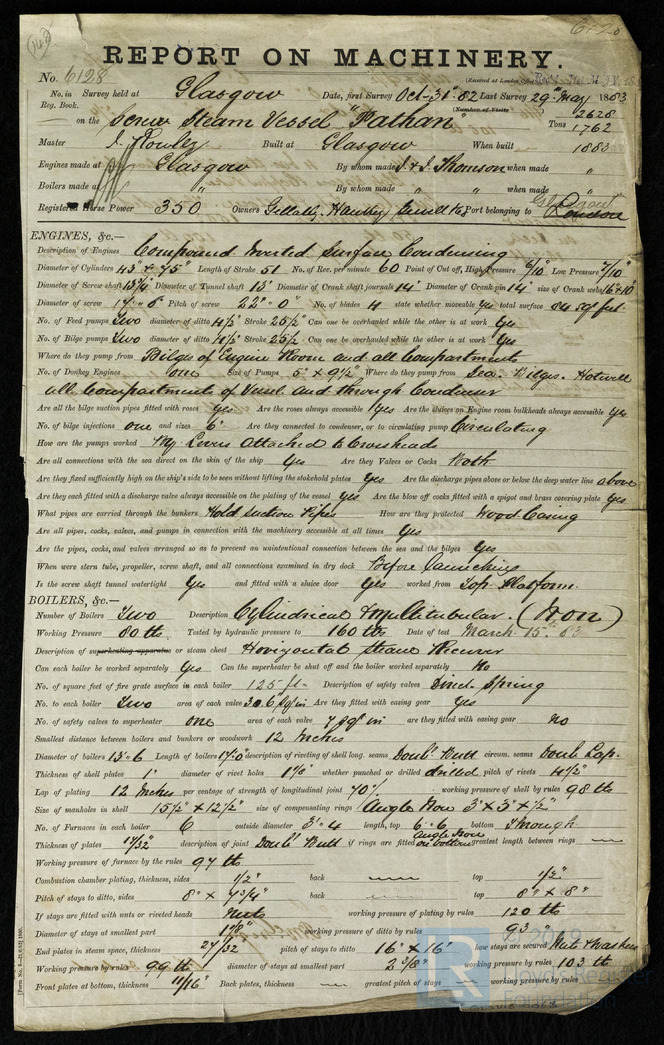 REPORT ON MACHINERY.
No. 6128
No. in Survey held at Glasgow Date, first Survey Oct. 31st 82 Last Survey 29th May 1883
Reg. Book. (Number of Visits)
on the Screw Steam Vessel "Pathan" Tons 2628 1762
Master J. Rowley Built at Glasgow When built 1883
Engines made at Glasgow By whom made J. & J. Thomson when made "
Boilers made at " By whom made " when made "
Registered Horse Power 350 Owners Gellatly, Hankey, Sewell & Co Port belonging to Glasgow London
ENGINES, &c.—
Description of Engines Compound Inverted Surface Condensing
Diameter of Cylinders 43" & 75" Length of Stroke 51 No. of Rev. per minute 60 Point of Cut off, High Pressure 6/10 Low Pressure 7/10
Diameter of Screw shaft 13 3/4 Diameter of Tunnel shaft 13" Diameter of Crank shaft journals 14" Diameter of Crank pin 14" size of Crank webs 16 × 10"
Diameter of screw 17'- 6" Pitch of screw 22" 0" No. of blades 4 state whether moveable Yes total surface 84 sq feet
No. of Feed pumps Two diameter of ditto 4 1/2" Stroke 25 1/2" Can one be overhauled while the other is at work Yes
No. of Bilge pumps Two diameter of ditto 4 1/2" Stroke 25 1/2 Can one be overhauled while the other is at work Yes
Where do they pump from Bilges of Engine Room and all Compartments
No. of Donkey Engines one Size of Pumps 5" × 9 1/2" Where do they pump from Sea. Bilges. Hotwell
all Compartments of Vessel and through Condenser
Are all the bilge suction pipes fitted with roses Yes Are the roses always accessible Yes Are the sluices on Engine room bulkheads always accessible Yes
No. of bilge injections one and sizes 6" Are they connected to condenser, or to circulating pump Circulating
How are the pumps worked By Levers Attached to Crossheads
Are all connections with the sea direct on the skin of the ship Yes Are they Valves or Cocks Both
Are they fixed sufficiently high on the ship's side to be seen without lifting the stokehold plates Yes Are the discharge pipes above or below the deep water line above
Are they each fitted with a discharge valve always accessible on the plating of the vessel Yes Are the blow off cocks fitted with a spigot and brass covering plate Yes
What pipes are carried through the bunkers Hold Suction Pipes How are they protected Wood Casing
Are all pipes, cocks, valves, and pumps in connection with the machinery accessible at all times Yes
Are the pipes, cocks, and valves arranged so as to prevent an unintentional connection between the sea and the bilges Yes
When were stern tube, propeller, screw shaft, and all connections examined in dry dock Before launching
Is the screw shaft tunnel watertight Yes and fitted with a sluice door Yes worked from Top Platform.
BOILERS, &c.—
Number of Boilers Two Description Cylindrical & Multitubular. (Iron)
Working Pressure 80 lbs Tested by hydraulic pressure to 160 lbs Date of test March 15th 83
Description of superheating apparatus or steam chest Horizontal Steam Receiver
Can each boiler be worked separately Yes Can the superheater be shut off and the boiler worked separately No
No. of square feet of fire grate surface in each boiler 125 ft Description of safety valves Direct Spring
No. to each boiler Two area of each valve 30.6 sq in Are they fitted with easing gear Yes
No. of safety valves to superheater one area of each valve 7 sq in are they fitted with easing gear no
Smallest distance between boilers and bunkers or woodwork 12 Inches
Diameter of boilers 13'-6 Length of boilers 17'-0" description of riveting of shell long. seams Doubl Butt circum. seams Doubl Lap.
Thickness of shell plates 1" diameter of rivet holes whether punched or drilled drilled pitch of rivets 4 1/2"
Lap of plating 12 Inches per centage of strength of longitudinal joint 70% working pressure of shell by rules 98 lbs
Size of manholes in shell 15 1/2" × 12 1/2" size of compensating rings Angle Iron 3" × 3" × 1/2"
No. of Furnaces in each boiler 6 outside diameter 3'-4 length, top 6'-6 bottom Through
Thickness of plates 17/32" description of joint Doubl Butt if rings are fitted Angle Iron on bottom greatest length between rings —
Working pressure of furnace by the rules 97 lbs
Combustion chamber plating, thickness, sides 1/2" back — top 1/2"
Pitch of stays to ditto, sides 8" × 7 3/4" back — top 8" × 8"
If stays are fitted with nuts or riveted heads Nuts working pressure of plating by rules 120 lbs
Diameter of stays at smallest part working pressure of ditto by rules 93
End plates in steam space, thickness 27/32 pitch of stays to ditto 16" × 16" how stays are secured Nuts & Washers
Working pressure by rules 99 lbs diameter of stays at smallest part 2 3/8" working pressure by rules 103 lbs
Front plates at bottom, thickness 11/16" Back plates, thickness — greatest pitch of stays — working pressure by rules —
© 2019
Lloyd's Register
Foundation